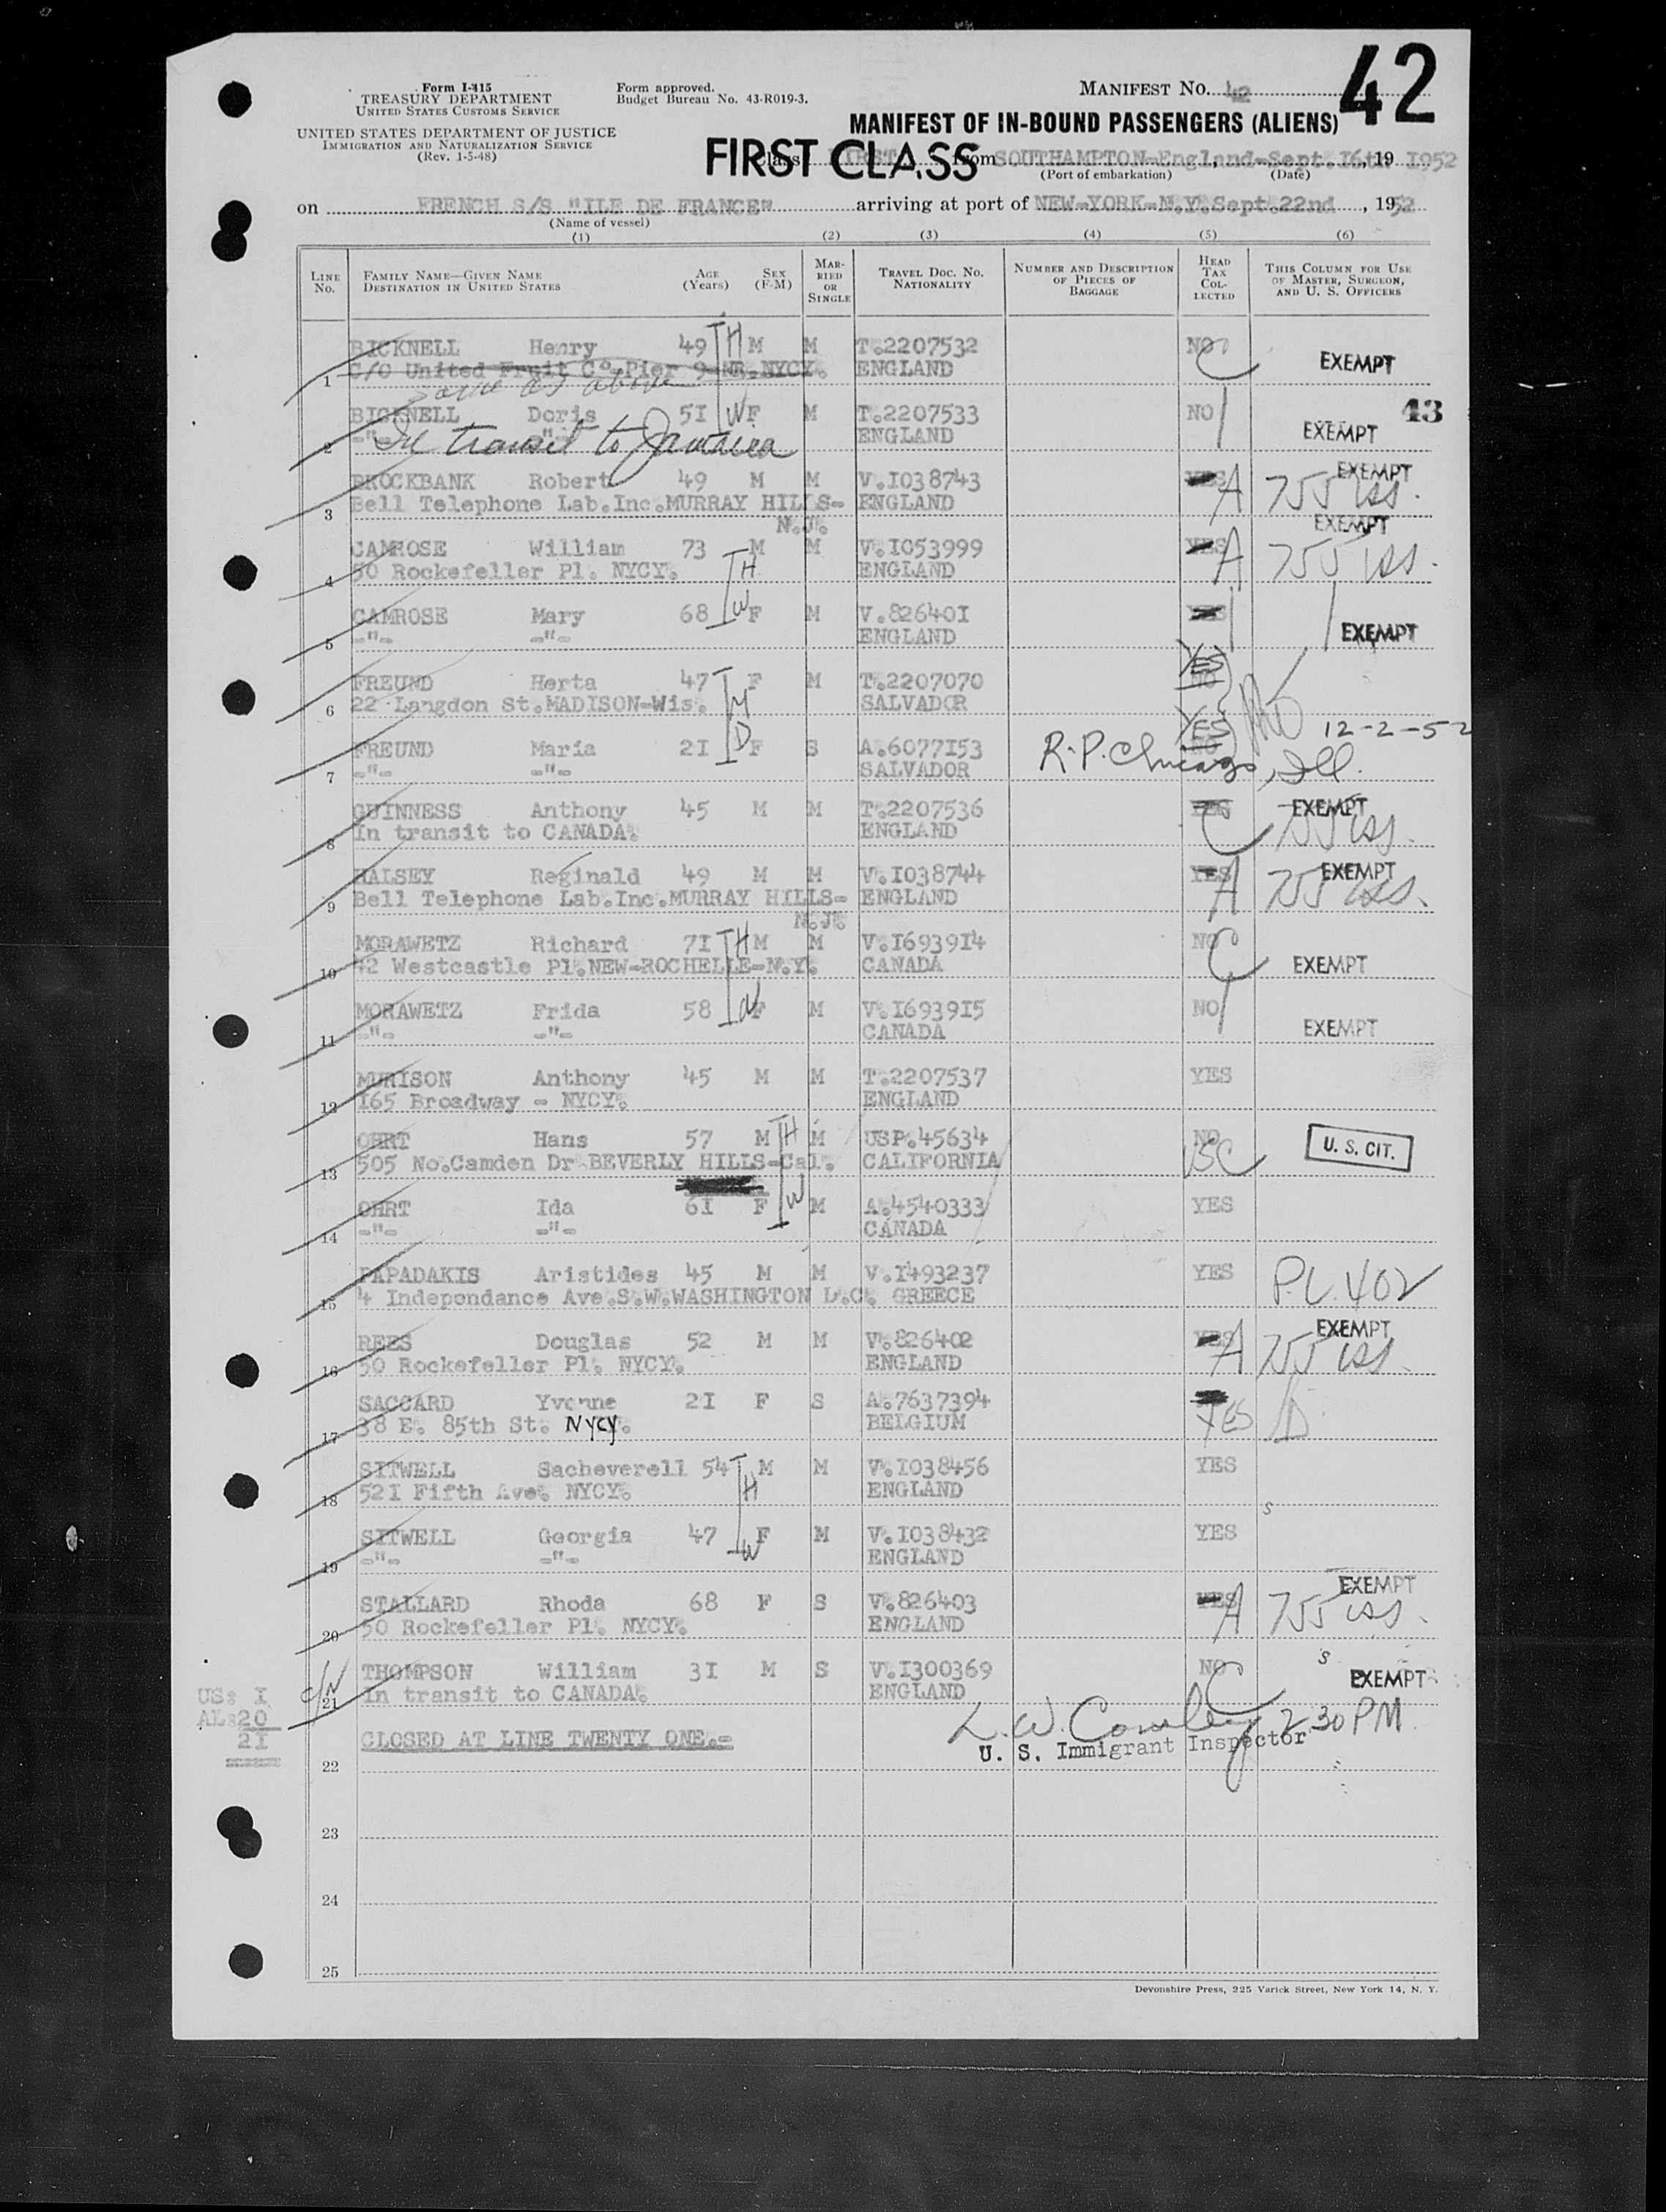 42
Form I-415
TREASURY DEPARTMENT
UNITED STATES CUSTOMS SERVICE
UNITED STATES DEPARTMENT OF JUSTICE
IMMIGRATION AND NATURALIZATION SERVICE
(Rev. 1-5-48)
Form approved.
Budget Bureau No. 43-R019-3.
MANIFEST NO. 42
MANIFEST OF IN-BOUND PASSENGERS (ALIENS)
FIRST CLASS
Class FIRST from SOUTHAMPTON-England, -Sept.16th, 19 1952
(Port of embarkation) (Date)
on FRENCH S/S "ILE DE FRANCE" arriving at port of NEW-YORK-N.Y. Sept.22nd, 1952
(Name of vessel)
(1) (2) (3) (4) (5) (6)
LINE NO. FAMILY NAME—GIVEN NAME DESTINATION IN UNITED STATES AGE (Years) SEX (F-M) MARRIED OR SINGLE TRAVEL DOC. NO. NATIONALITY NUMBER AND DESCRIPTION OF PIECES OF BAGGAGE HEAD TAX COLLECTED THIS COLUMN FOR USE OF MASTER, SURGEON, AND U. S. OFFICERS
BICKNELL Henry 49 H M M T.2207532 NO C EXEMPT
1 C/O United Fruit Co.Pier 9-NR.NYCY. ENGLAND
same as above
BICKNELL Doris 51 W F M T.2207533 NO EXEMPT 43
2 -"- -"- In transit to Jamaica ENGLAND
BROCKBANK Robert 49 M M V.I038743 YES A EXEMPT 755 iss.
3 Bell Telephone Lab.Inc.MURRAY HILLS- ENGLAND
N.J.
CAMROSE William 73 H M M V.I053999 YES A EXEMPT 755 iss.
4 50 Rockefeller Pl. NYCY. ENGLAND
CAMROSE Mary 68 W F M V.82640I YES EXEMPT
5 -"- -"- ENGLAND
FREUND Herta 47 M F M T.2207070 NO YES
6 22 Langdon St.MADISON-Wis. SALVADOR
FREUND Maria 2I D F S A.6077I53 NO YES 12-2-52
7 -"- -"- SALVADOR R.P. Chicago, Ill.
GUINNESS Anthony 45 M M T.2207536 YES C EXEMPT 755 iss.
8 In transit to CANADA. ENGLAND
HALSEY Reginald 49 M M V.I038744 YES A EXEMPT 755 iss.
9 Bell Telephone Lab.Inc.MURRAY HILLS- ENGLAND
N.J.
MORAWETZ Richard 7I H M M V.I6939I4 NO C EXEMPT
10 42 Westcastle Pl.NEW-ROCHELLE-N.Y. CANADA
MORAWETZ Frida 58 W F M V.I6939I5 NO EXEMPT
11 -"- -"- CANADA
MURISON Anthony 45 M M T.2207537 YES
12 I65 Broadway - NYCY. ENGLAND
OHRT Hans 57 M H M USP.45634 NO BC U. S. CIT.
13 505 No.Camden Dr BEVERLY HILLS-Cal. CALIFORNIA
OHRT Ida 6I F W M A.4540333 YES
14 -"- -"- CANADA
PAPADAKIS Aristides 45 M M V.I493237 YES P.L. 402
15 4 Independance Ave.S.W.WASHINGTON D.C. GREECE
REES Douglas 52 M M V.826402 YES A EXEMPT 755 iss.
16 50 Rockefeller Pl. NYCY. ENGLAND
SACCARD Yvonne 2I F S A.7637394 YES
17 38 E. 85th St. NYCY. BELGIUM
SITWELL Sacheverell 54 H M M V.I038456 YES
18 52I Fifth Ave. NYCY. ENGLAND
SITWELL Georgia 47 W F M V.I038432 YES
19 -"- -"- ENGLAND
STALLARD Rhoda 68 F S V.826403 YES A EXEMPT 755 iss.
20 50 Rockefeller Pl. NYCY. ENGLAND
THOMPSON William 3I M S V.I300369 NO C EXEMPT
21 In transit to CANADA. ENGLAND
US: I
AL:20
2I
L. W. 2 30 PM
CLOSED AT LINE TWENTY ONE.-
U. S. Immigrant Inspector
22
23
24
25
Devonshire Press, 225 Varick Street, New York 14, N. Y.